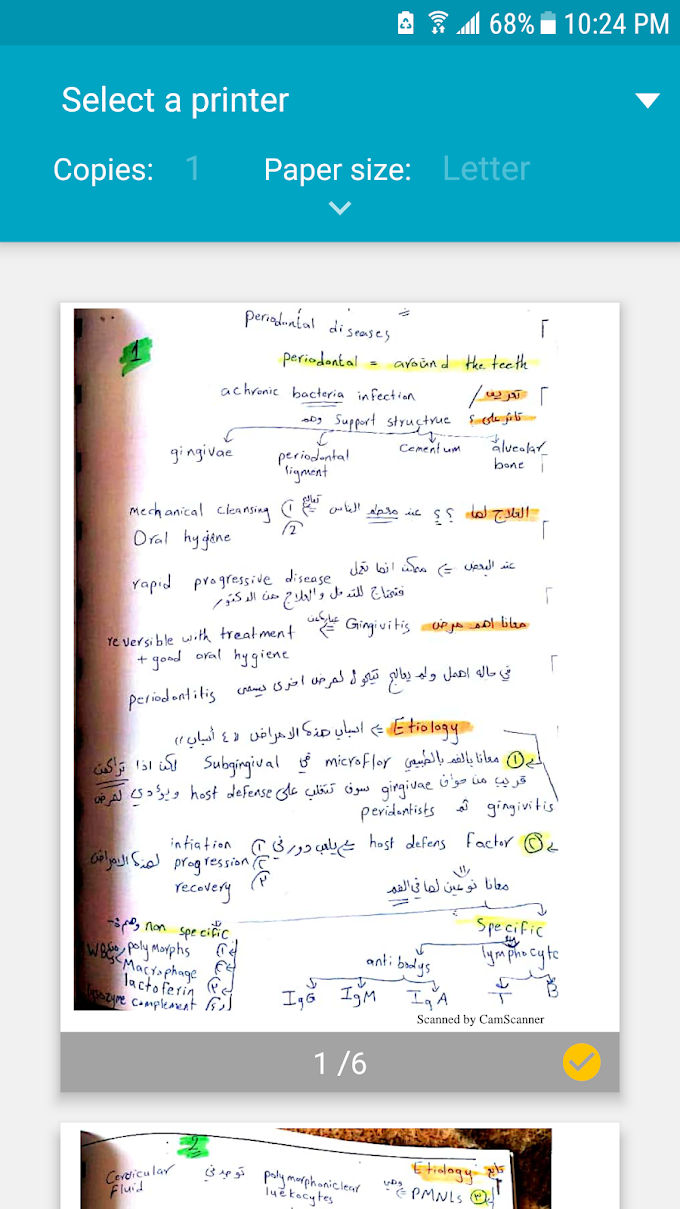 68% 10:24 PM
Select a printer
Copies: 1 Paper size: Letter
periodontal diseases
1
periodontal = around the teeth
تعريف / achronic bacteria infection
تأثر على ؟ Support structrue وهم
gingivae periodontal ligment Cementum alveolar bone
العلاج لها ؟؟ عند معظم الناس 1) mechanical cleansing
2) Oral hygiene
عند البعض ⇐ ممكن انها تمثل rapid progressive disease
فتحتاج للتدخل والعلاج من الدكتور
معانا اهم مرض Gingivitis ⇐ reversible with treatment
+ good oral hygiene
في حاله اهمل ولم يعالج لمرض اخرى يسمى periodontitis
Etiology ⇐ اسباب هذه الامراض (( ٤ أسباب ))
١ معانا بالفم بالطبيعي microflor في Subgingival لكن اذا تراكمت
قريب من حواف gingivae سوف تتغلب على host defense ويؤدي لمرض
gingivitis ثم peridontists
٢ host defens Factor ⇐ يلعب دور في ١) intiation
٢) progression لهذه الامراض
٣) recovery
معانا نوعين لها في الفم
Specific non specific
lymphocyte antibodys
T B IgG IgM IgA
١) polymorphs
٢) Macrophage WBCs
٣) lactoferin
٤) lysozyme complement
Scanned by CamScanner
1 /6
2
تابع Etiology
٣ PMNLs ⇐ وهي polymorphoniclear luekocytes توجد في Cervicular Fluid